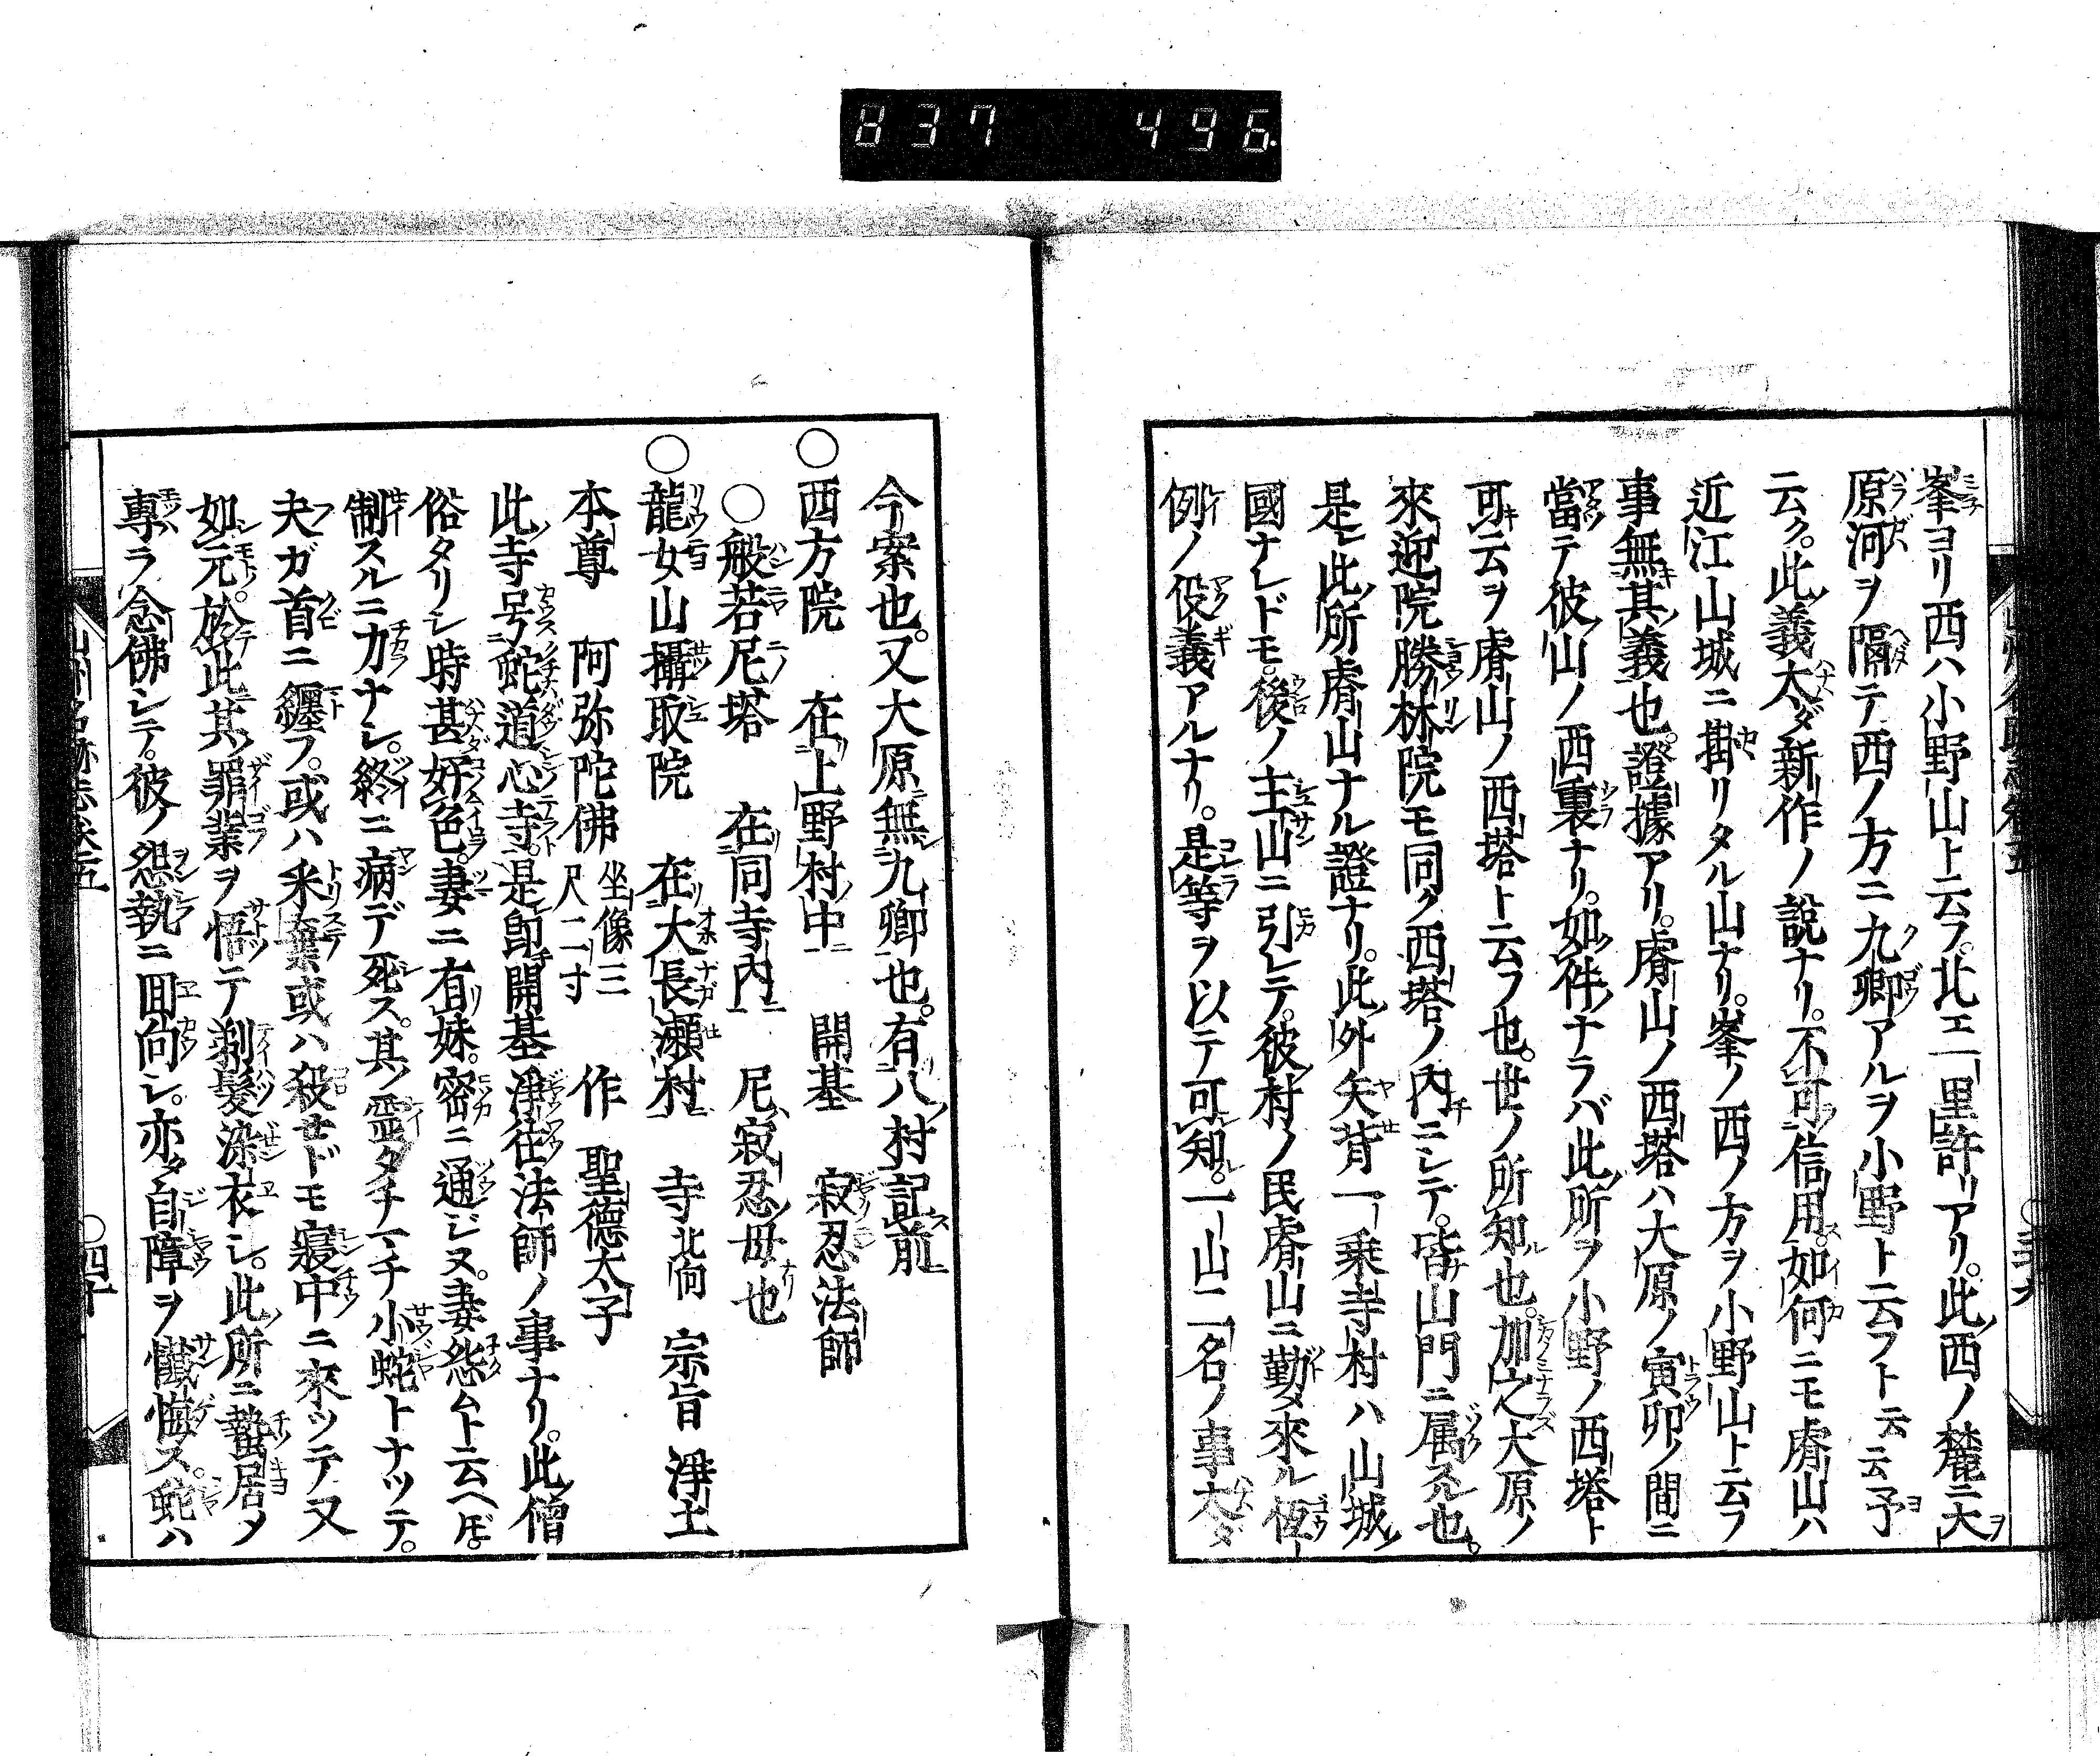 837 496
峯ヨリ西ハ小野山ト云フ。北エ一里許リアリ。此西ノ麓ニ大
原河ヲ隔テ西ノ方ニ九卿アルヲ小野ト云フト云云予
云ク。此義太ダ新作ノ說ナリ。不可信用。如何ニモ睿山ハ
近江山城ニ掛リタル山ナリ。峯ノ西ノ方ヲ小野山ト云フ
事無其義也。證據アリ。睿山ノ西塔ハ大原ノ寅卯ノ間ニ
當テ彼山ノ西裏ナリ。如件ナラバ此所ヲ小野ノ西塔ト
可云ヲ睿山ノ西塔ト云フ也。世ノ所知也。加之大原ノ
來迎院勝林院モ同ク西塔ノ內ニシテ。皆山門ニ属スル也。
是レ此所睿山ナル證ナリ。此外矢背一乗寺村ハ山城
國ナレドモ。後ノ主山ニ引レテ。彼村ノ民睿山ニ勤メ來ル恆
例ノ役義アルナリ。是等ヲ以テ可知。一山二名ノ事太ダ
今案也。又大原無九卿也。有八村記前
○西方院 在上野村中 開基 寂忍法師
○般若尼塔 在同寺內 尼寂忍母也
○龍女山攝取院 在大長瀬村 寺北向 宗旨 淨土
本尊 阿弥陀佛 坐像三尺二寸 作 聖德太子
此寺号蛇道心寺。是卽開基淨往法師ノ事ナリ。此僧
俗タリシ時甚好色。妻ニ有妹。密ニ通ジヌ。妻怨ムト云ヘドモ。
制スルニ力ナシ。終ニ病デ死ス。其霊タチマチ小蛇トナツテ。
夫ガ首ニ纒フ。或ハ釆棄或ハ殺セドモ寢中ニ來ツテ又
如元。於此其罪業ヲ悟テ剃髪染衣シ。此所ニ蟄居メ
專ラ念佛シテ。彼ノ怨執ニ回向シ。亦タ自障ヲ懺悔ス。蛇ハ
○四十